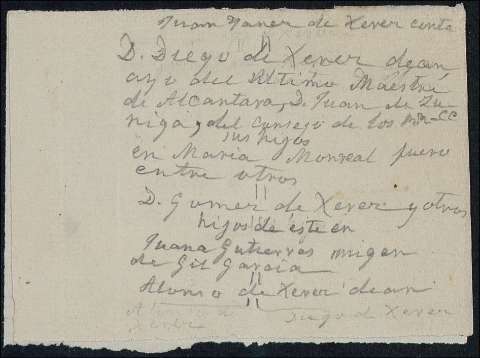 Juan Yañez de Xerez conta
D. Diego de Xerez dean
ayo del ultimo Maestre
de Alcantara, D. Juan de Zu-
ñiga, y del consejo de los RR. CC
sus hijos
en Maria Monreal fuero
entre otros
D. Gomez de Xerez y otros
hijos de este en
Juana Gutierres muger
de Gil Garcia
Alonso de Xerez dean
Diego de Xerez